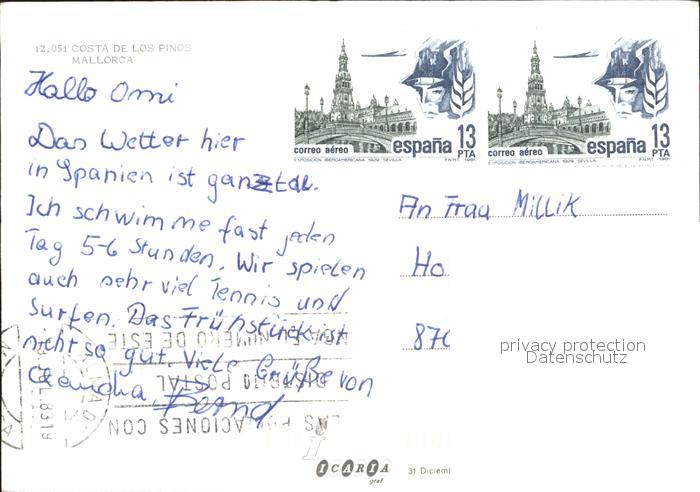 12,051 COSTA DE LOS PINOS
MALLORCA
Hallo Omi
Das Wetter hier
in Spanien ist ganz toll.
Ich schwimme fast jeden
Tag 5-6 Stunden. Wir spielen
auch sehr viel Tennis und
Surfen. Das Frühstück ist
nicht so gut. Viele Grüße von
Claudia. Bernd
correo aéreo
españa 13
PTA
EXPOSICION IBEROAMERICANA 1929. SEVILLA
F.N.M.T. 1981
correo aéreo
españa 13
PTA
EXPOSICION IBEROAMERICANA 1929. SEVILLA
F.N.M.T. 1981
An Frau Millik
Ho
870
privacy protection
Datenschutz
NUMERO DE ESTE
DISTRITO POSTAL
CON
ICARIA
graf
31 Diciem